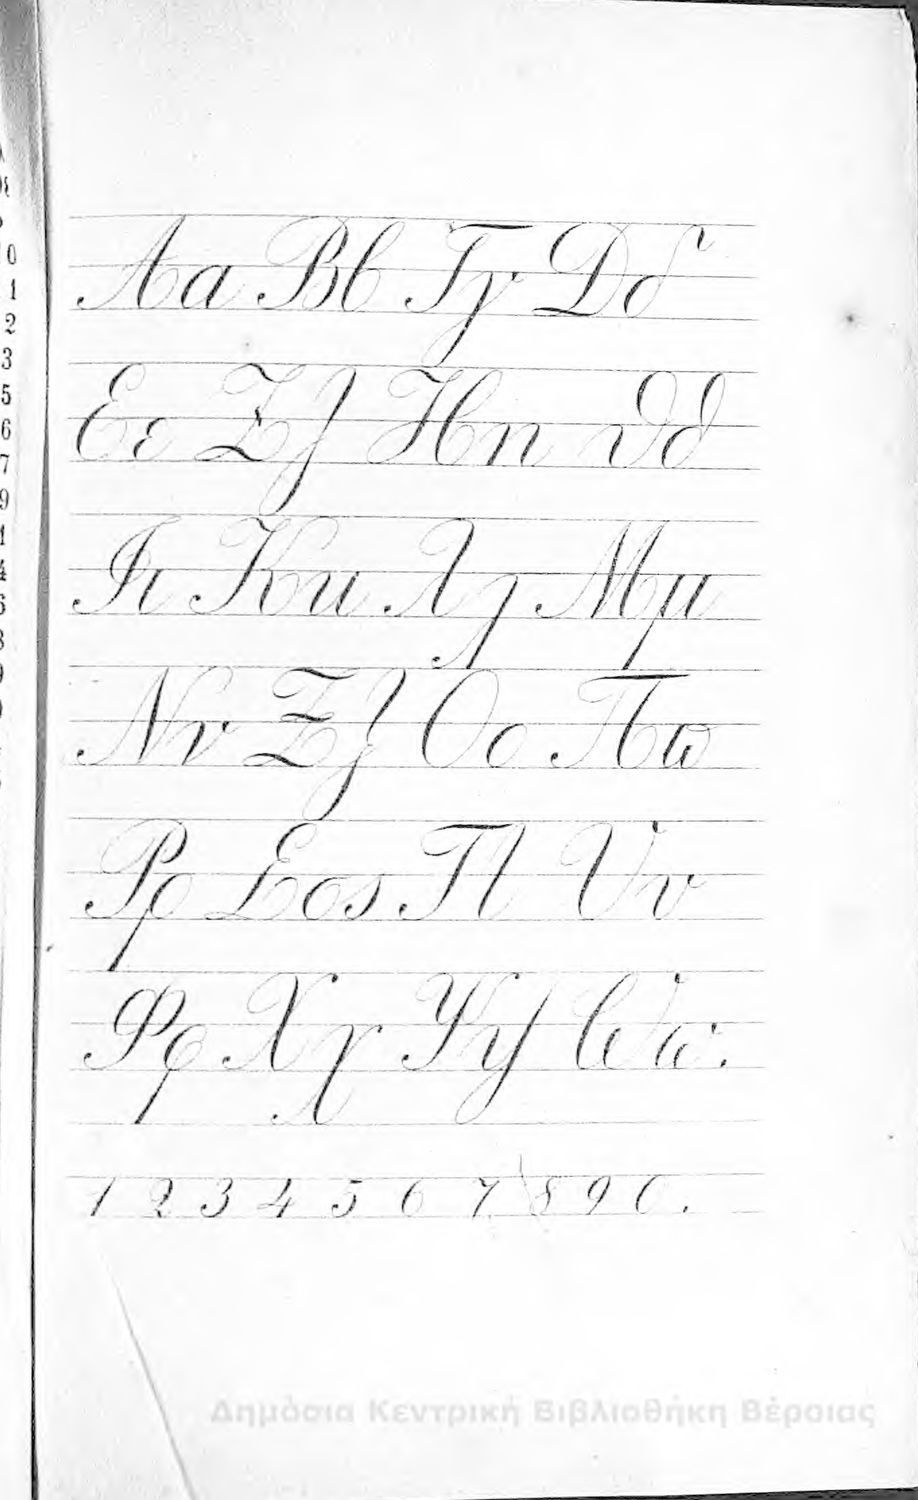 Αα Ββ Γγ Δδ
Εε Ζζ Ηη Θθ
Ιι Κκ Λλ Μμ
Νν Ξξ Οο Πϖ
Ρρ Σσς Ττ Υυ
Φφ Χχ Ψψ Ωω.
1 2 3 4 5 6 7 8 9 0.
Δημόσια Κεντρική Βιβλιοθήκη Βέροιας